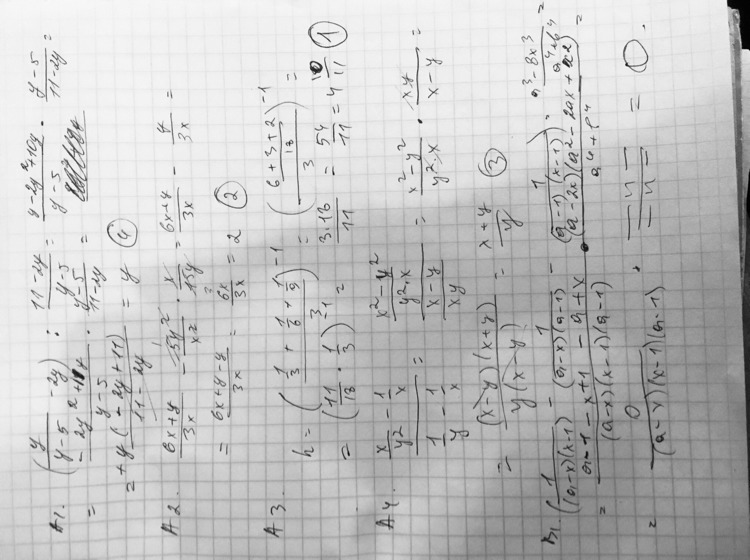 A1. (y/(y-5) - 2y) : (11-2y)/(y-5) = (y-2y²+10y)/(y-5) · (y-5)/(11-2y)
= (-2y²+11y)/(y-5) · (y-5)/(11-2y) =
= +y(-2y+11)/(11-2y) = y (4)
A2. (6x+y)/3x - 5y²/x² · x/15y = (6x+y)/3x - y/3x =
= (6x+y-y)/3x = 6x/3x = 2 (2)
A3. h = ((1/3 + 1/6 + 1/9)/3)⁻¹ = (((6+3+2)/18)/3)⁻¹ =
= (11/18 · 1/3)⁻¹ = 3·18/11 = 54/11 = 4 10/11 (1)
A4. (x/y² - 1/x)/(1/y - 1/x) = ((x²-y²)/(y²·x))/((x-y)/xy) = (x²-y²)/(y²·x) · xy/(x-y) =
= (x-y)(x+y)/(y(x-y)) = (x+y)/y (3)
B1. (1/((a-x)(x-1)) - 1/((a-x)(a-1)) - 1/((a-1)(x-1))) · (a³-8x³)/(a⁴+b⁴) =
= (a-1-x+1-a+x)/((a-x)(x-1)(a-1)) · (a-2x)(a²-2ax+x2)/(a⁴+b⁴) =
= 0/((a-x)(x-1)(a-1)) · = 0.